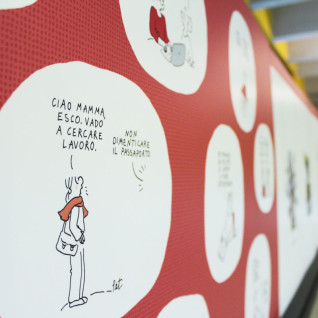 CIAO MAMMA,
ESCO. VADO
A CERCARE
LAVORO.
NON
DIMENTICARE
IL PASSAPORTO